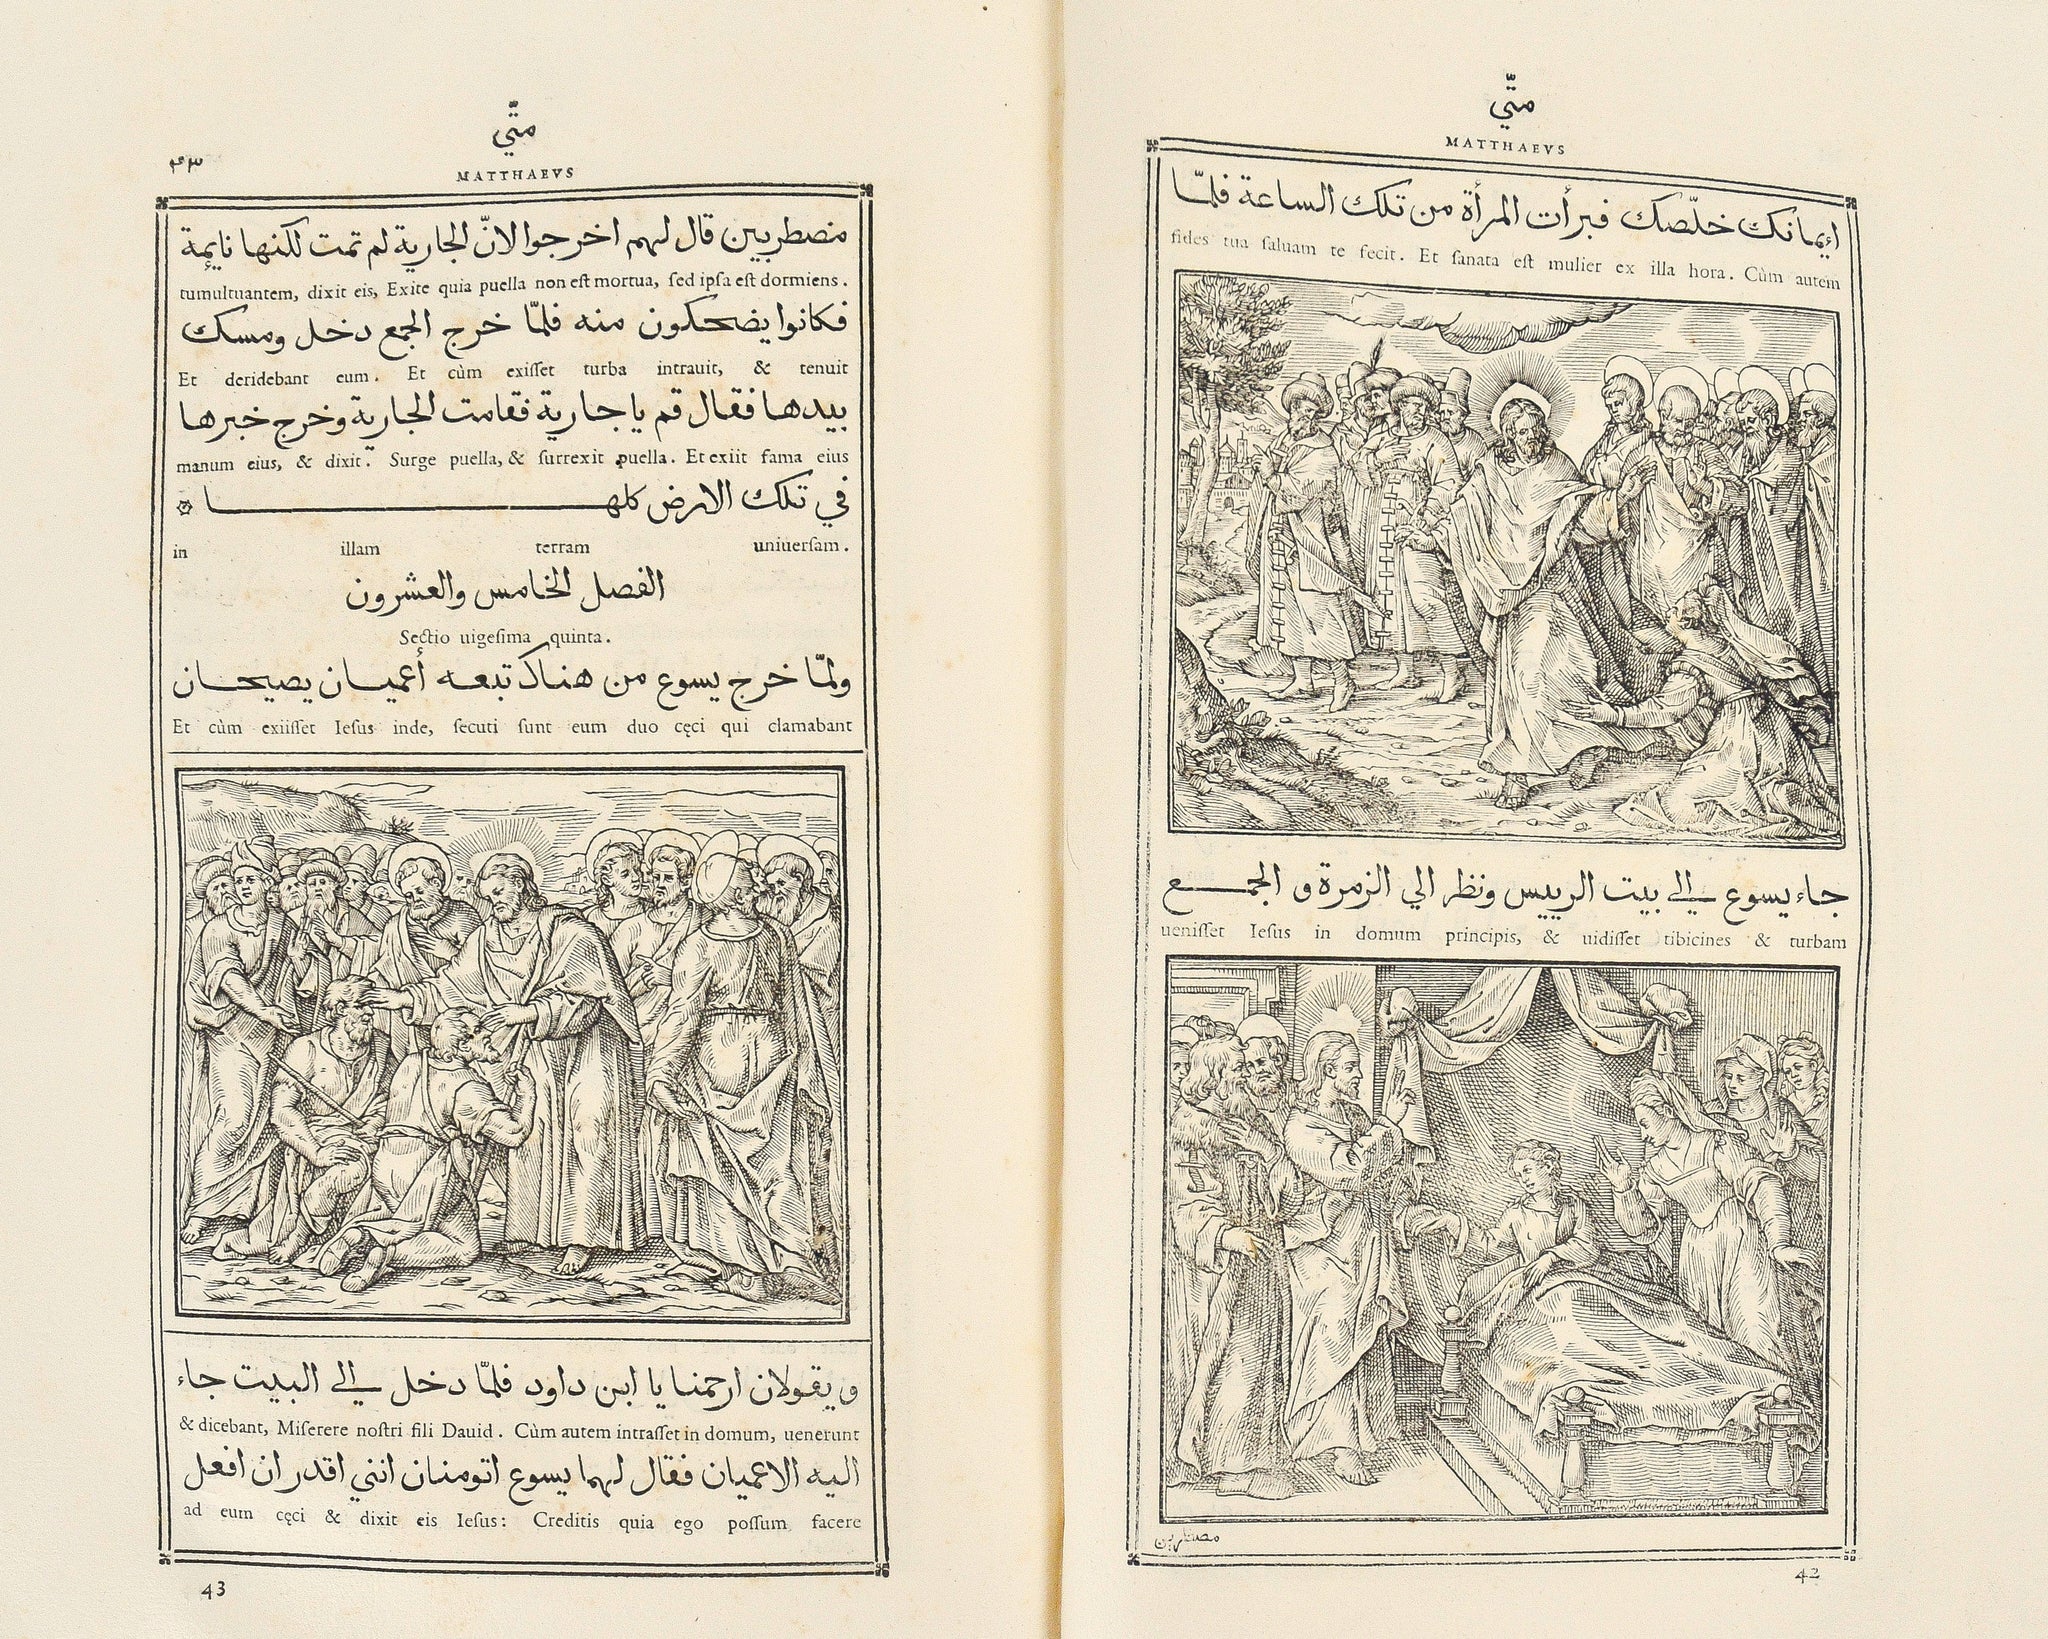 متّي
MATTHAEVS
اءيمانك خلّصك فبرأت المرأة من تلك الساعة فلمّا
fides tua ſaluam te fecit. Et ſanata eſt mulier ex illa hora. Cùm autem
جاء يسوع الي بيت الرييس ونظر الي الزمرة و الجمع
ueniſſet Ieſus in domum principis, & uidiſſet tibicines & turbam
مضطربين
42
متّي
٤٣
MATTHAEVS
مضطربين قال لهم اخرجوا لانّ الجارية لم تمت لكنها نايمة
tumultuantem, dixit eis, Exite quia puella non eſt mortua, ſed ipſa eſt dormiens.
فكانوا يضحكون منه فلمّا خرج الجمع دخل ومسك
Et deridebant eum. Et cùm exiſſet turba intrauit, & tenuit
بيدها فقال قم يا جارية فقامت الجارية وخرج خبرها
manum eius, & dixit. Surge puella, & ſurrexit puella. Et exiit fama eius
في تلك الارض كلها
in illam terram uniuerſam.
الفصل الخامس والعشرون
Sectio uigeſima quinta.
ولمّا خرج يسوع من هناك تبعه أعميان يصيحان
Et cùm exiiſſet Ieſus inde, ſecuti ſunt eum duo cęci qui clamabant
ويقولان ارحمنا يا ابن داود فلمّا دخل الي البيت جاء
& dicebant, Miſerere noſtri fili Dauid. Cùm autem intraſſet in domum, uenerunt
اليه الاعميان فقال لهما يسوع اتومنان انني اقدر ان افعل
ad eum cęci & dixit eis Ieſus: Creditis quia ego poſſum facere
43